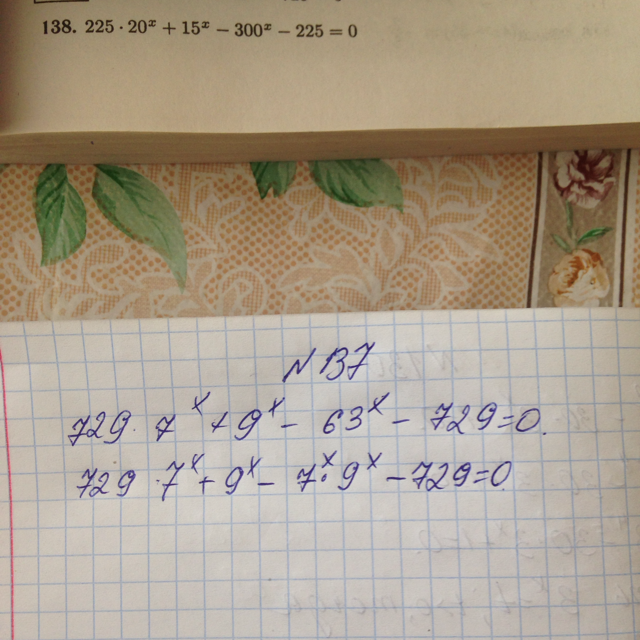 138. 225 · 20ˣ + 15ˣ − 300ˣ − 225 = 0
N 137
729 · 7ˣ + 9ˣ − 63ˣ − 729 = 0.
729 · 7ˣ + 9ˣ − 7ˣ · 9ˣ − 729 = 0